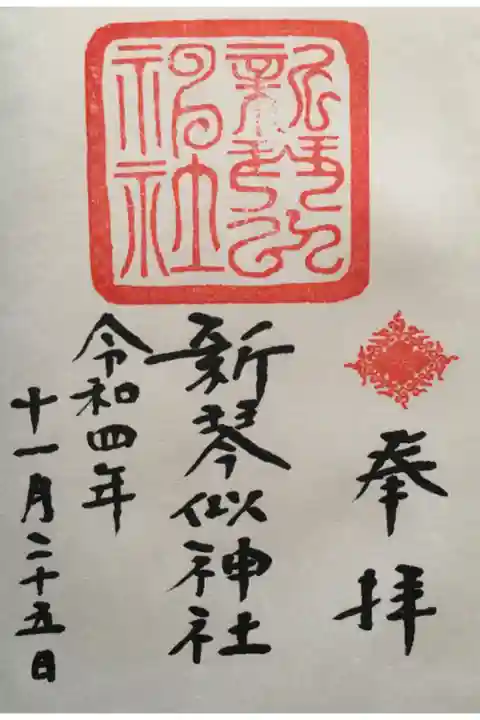 奉拝
新琴似神社
令和四年
十一月二十五日
新琴似
神社